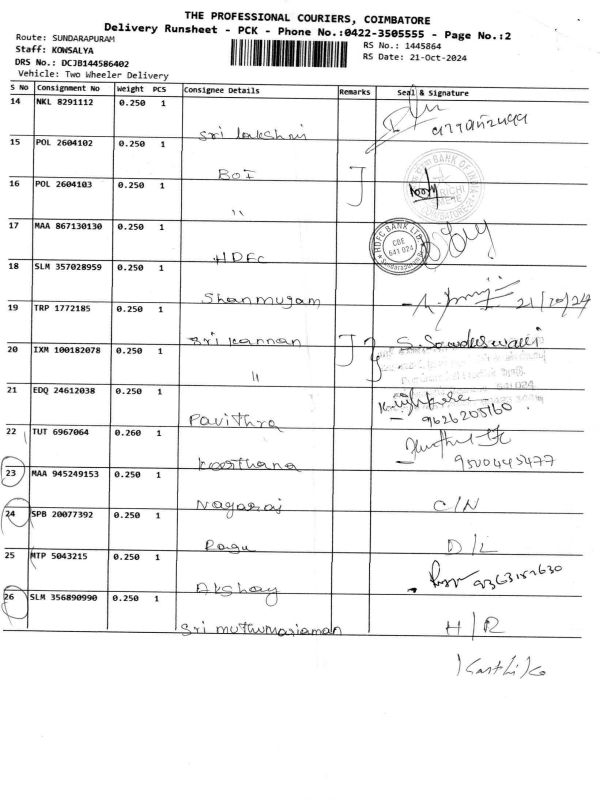 THE PROFESSIONAL COURIERS, COIMBATORE
Delivery Runsheet - PCK - Phone No.:0422-3505555 - Page No.:2
Route: SUNDARAPURAM
RS No.: 1445864
Staff: KOWSALYA
RS Date: 21-Oct-2024
DRS No.: DCJB144586402
Vehicle: Two Wheeler Delivery
S No Consignment No Weight PCS Consignee Details Remarks Seal & Signature
14 NKL 8291112 0.250 1
Sri Lakshmi
15 POL 2604102 0.250 1
BOI
16 POL 2604103 0.250 1
"
17 MAA 867130130 0.250 1
HDFC
HDFC BANK LTD
CBE
641 024
18 SLM 357028959 0.250 1
Shanmugam 21/10/24
19 TRP 1772185 0.250 1
Sri Kannan
20 IXM 100182078 0.250 1
"
641 024
21 EDQ 24612038 0.250 1
Pavithra 9626205160
22 TUT 6967064 0.260 1
Keerthana 9500443477
23 MAA 945249153 0.250 1
Nagaraj C/N
24 SPB 20077392 0.250 1
Ragu D/L
25 MTP 5043215 0.250 1
Akshay 9363152630
26 SLM 356890990 0.250 1
Sri Muthumariaman H/R